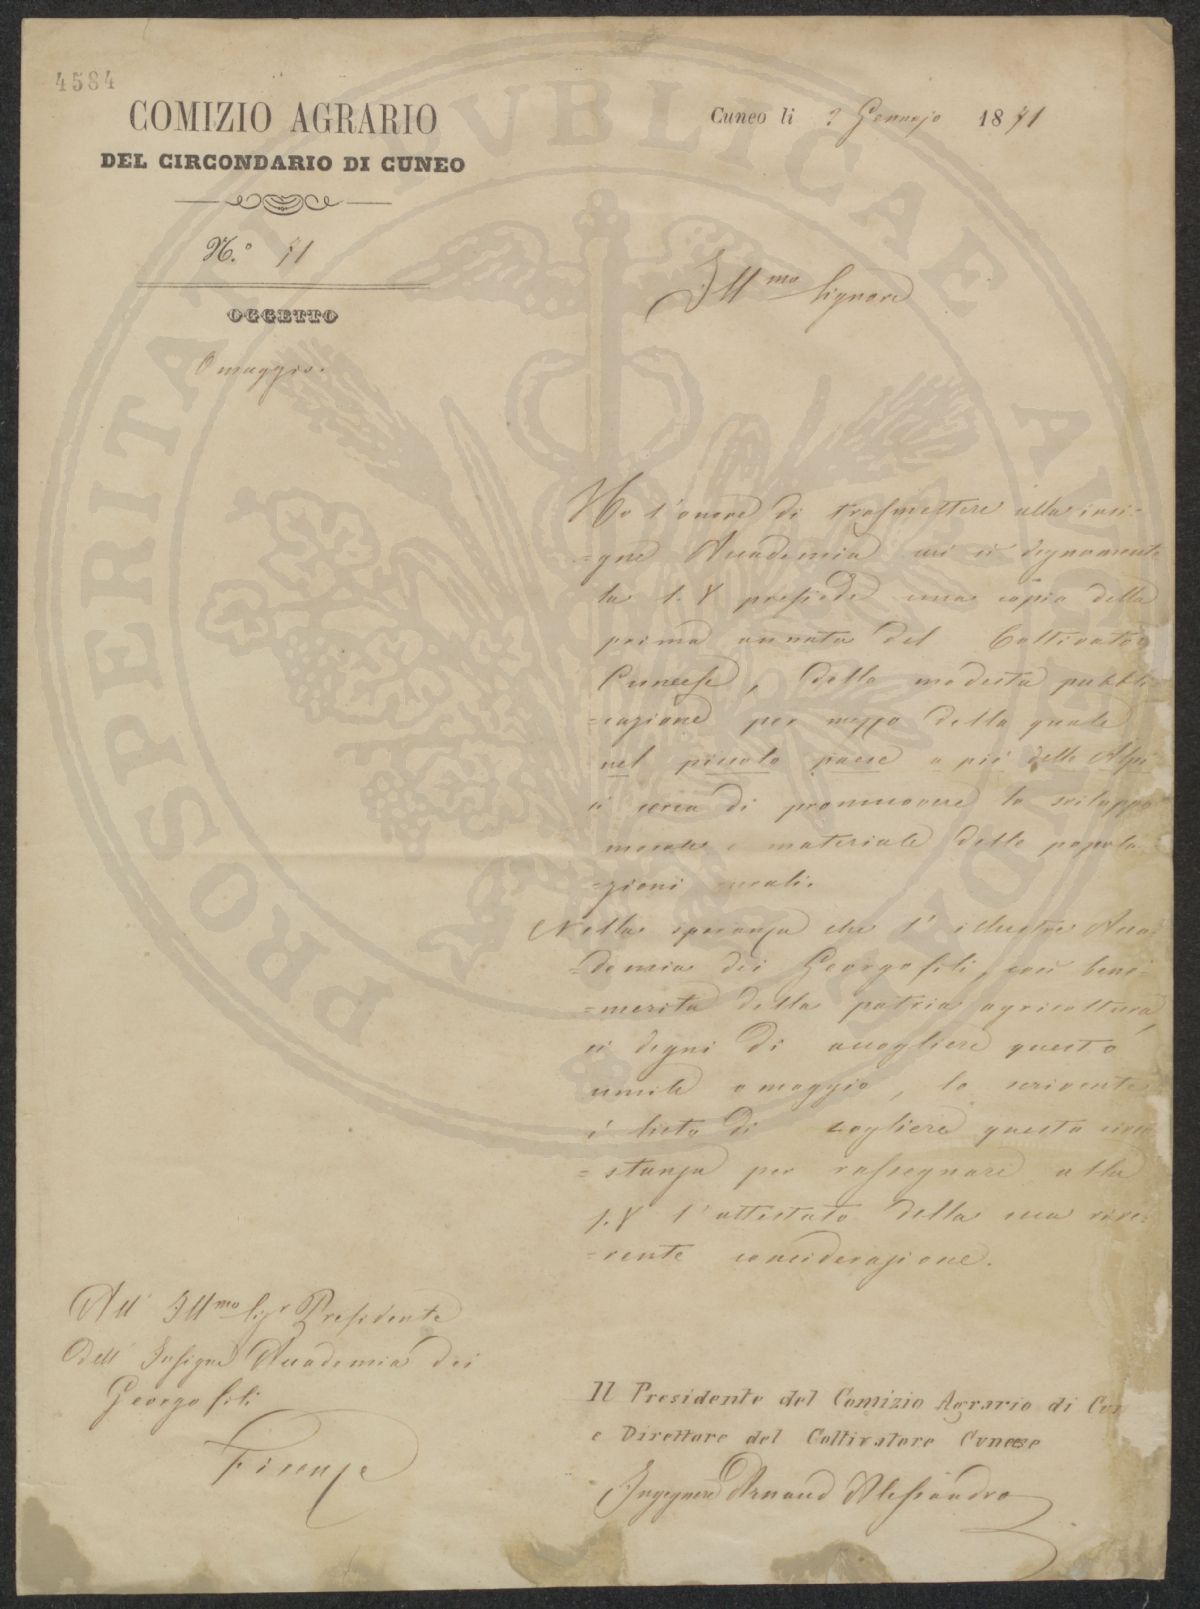 4584
COMIZIO AGRARIO
DEL CIRCONDARIO DI CUNEO
Cuneo li 2 Gennajo 1871
N.° 71
OGGETTO
Omaggio.
Ill.mo Signore
Ho l'onore di trasmettere alla insi=
=gne Accademia cui sì degnamente
la S.V presiede una copia della
prima annata del Coltivatore
Cuneese, della modesta pubbli=
=cazione per mezzo della quale
nel piccolo paese a piè delle Alpi
si cerca di promuovere lo sviluppo
morale e materiale delle popola
=zioni rurali.
Nella speranza che l'illustre Acca=
=demia dei Georgofili, così bene=
=merita della patria agricoltura,
si degni di accogliere questo
umile omaggio, lo scrivente
è lieto di cogliere questa circo
=stanza per rassegnare alla
S.V l'attestato della sua rive=
=rente considerazione.
All' Ill.mo Sig.r Presidente
dell' Insigne Accademia dei
Georgofili
Firenze
Il Presidente del Comizio Agrario di Cun
e Direttore del Coltivatore Cuneese
Ingegnere Arnaud Alessandro
PROSPERITATI PVBLICAE AVGENDAE